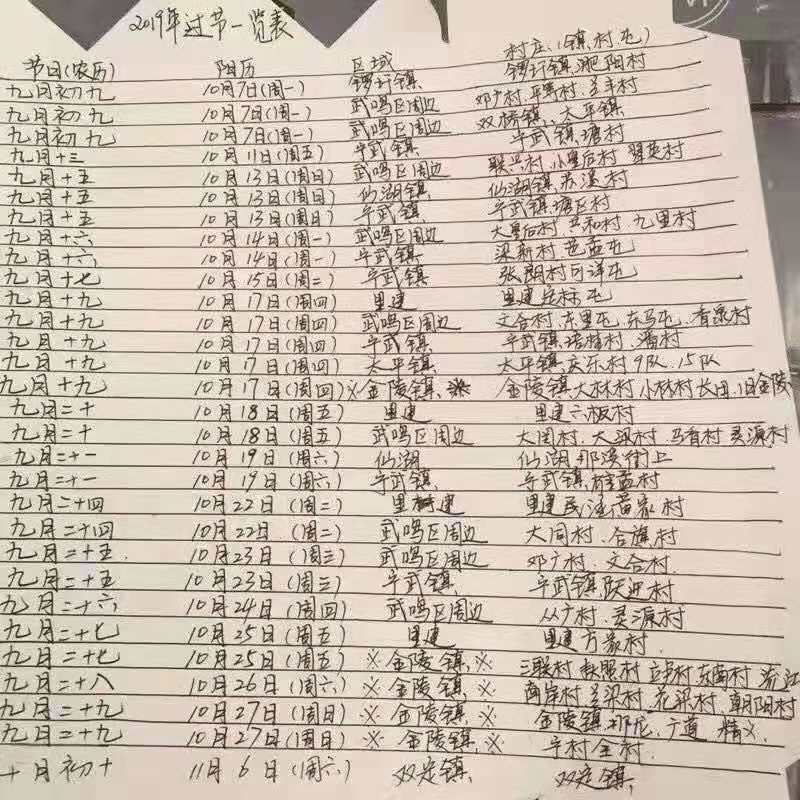 2019年过节一览表
节日(农历) 阳历 区域 村庄、(镇、村、屯)
九月初九 10月7日(周一) 锣圩镇 锣圩镇 阳村
九月初九 10月7日(周一) 武鸣区周边 邓广村、平等村、兰丰村
九月初九 10月7日(周一) 武鸣区周边 双桥镇、太平镇
九月十三 10月11日(周五) 宁武镇 宁武镇塘村
九月十五 10月13日(周日) 武鸣区周边 联兴村、小皇后村
九月十五 10月13日(周日) 仙湖镇 仙湖镇苏溪村
九月十五 10月13日(周日) 宁武镇 宁武镇
九月十六 10月14日(周一) 武鸣区周边 大皇后村、共和村、九里村
九月十六 10月14日(周一) 宁武镇 梁新村 屯
九月十七 10月15日(周二) 宁武镇 张朗村 屯
九月十九 10月17日(周四) 里建 里建 屯
九月十九 10月17日(周四) 武鸣区周边 文合村、东里屯、东马屯、香泉村
九月十九 10月17日(周四) 宁武镇 宁武镇 村、潘村
九月十九 10月17日(周四) 太平镇 太平镇庆乐村9队、15队
九月十九 10月17日(周四) ※金陵镇、※ 金陵镇大林村小林村长田、旧金陵
九月二十 10月18日(周五) 里建 里建六板村
九月二十 10月18日(周五) 武鸣区周边 大同村、大梁村、马香村灵源村
九月二十一 10月19日(周六) 仙湖 仙湖那溪街上
九月二十一 10月19日(周六) 宁武镇 宁武镇 村
九月二十四 10月22日(周二) 里建 里建 村
九月二十四 10月22日(周二) 武鸣区周边 大同村、合旗村
九月二十五 10月23日(周三) 武鸣区周边 邓广村、文合村
九月二十五 10月23日(周三) 宁武镇 宁武镇跃进村
九月二十六 10月24日(周四) 武鸣区周边 从广村、灵源村
九月二十七 10月25日(周五) 里建 里建方家村
九月二十七 10月25日(周五) ※金陵镇、※ 三联村 村 立岸村 东南村
九月二十八 10月26日(周六) ※金陵镇、※ 两岸村 兰梁村、花梁村、朝阳村
九月二十九 10月27日(周日) ※金陵镇、※ 金陵镇那龙、广道、精义
九月二十九 10月27日(周日) ※金陵镇、※ 宁村全村
十月初十 11月6日(周六) 双定镇 双定镇